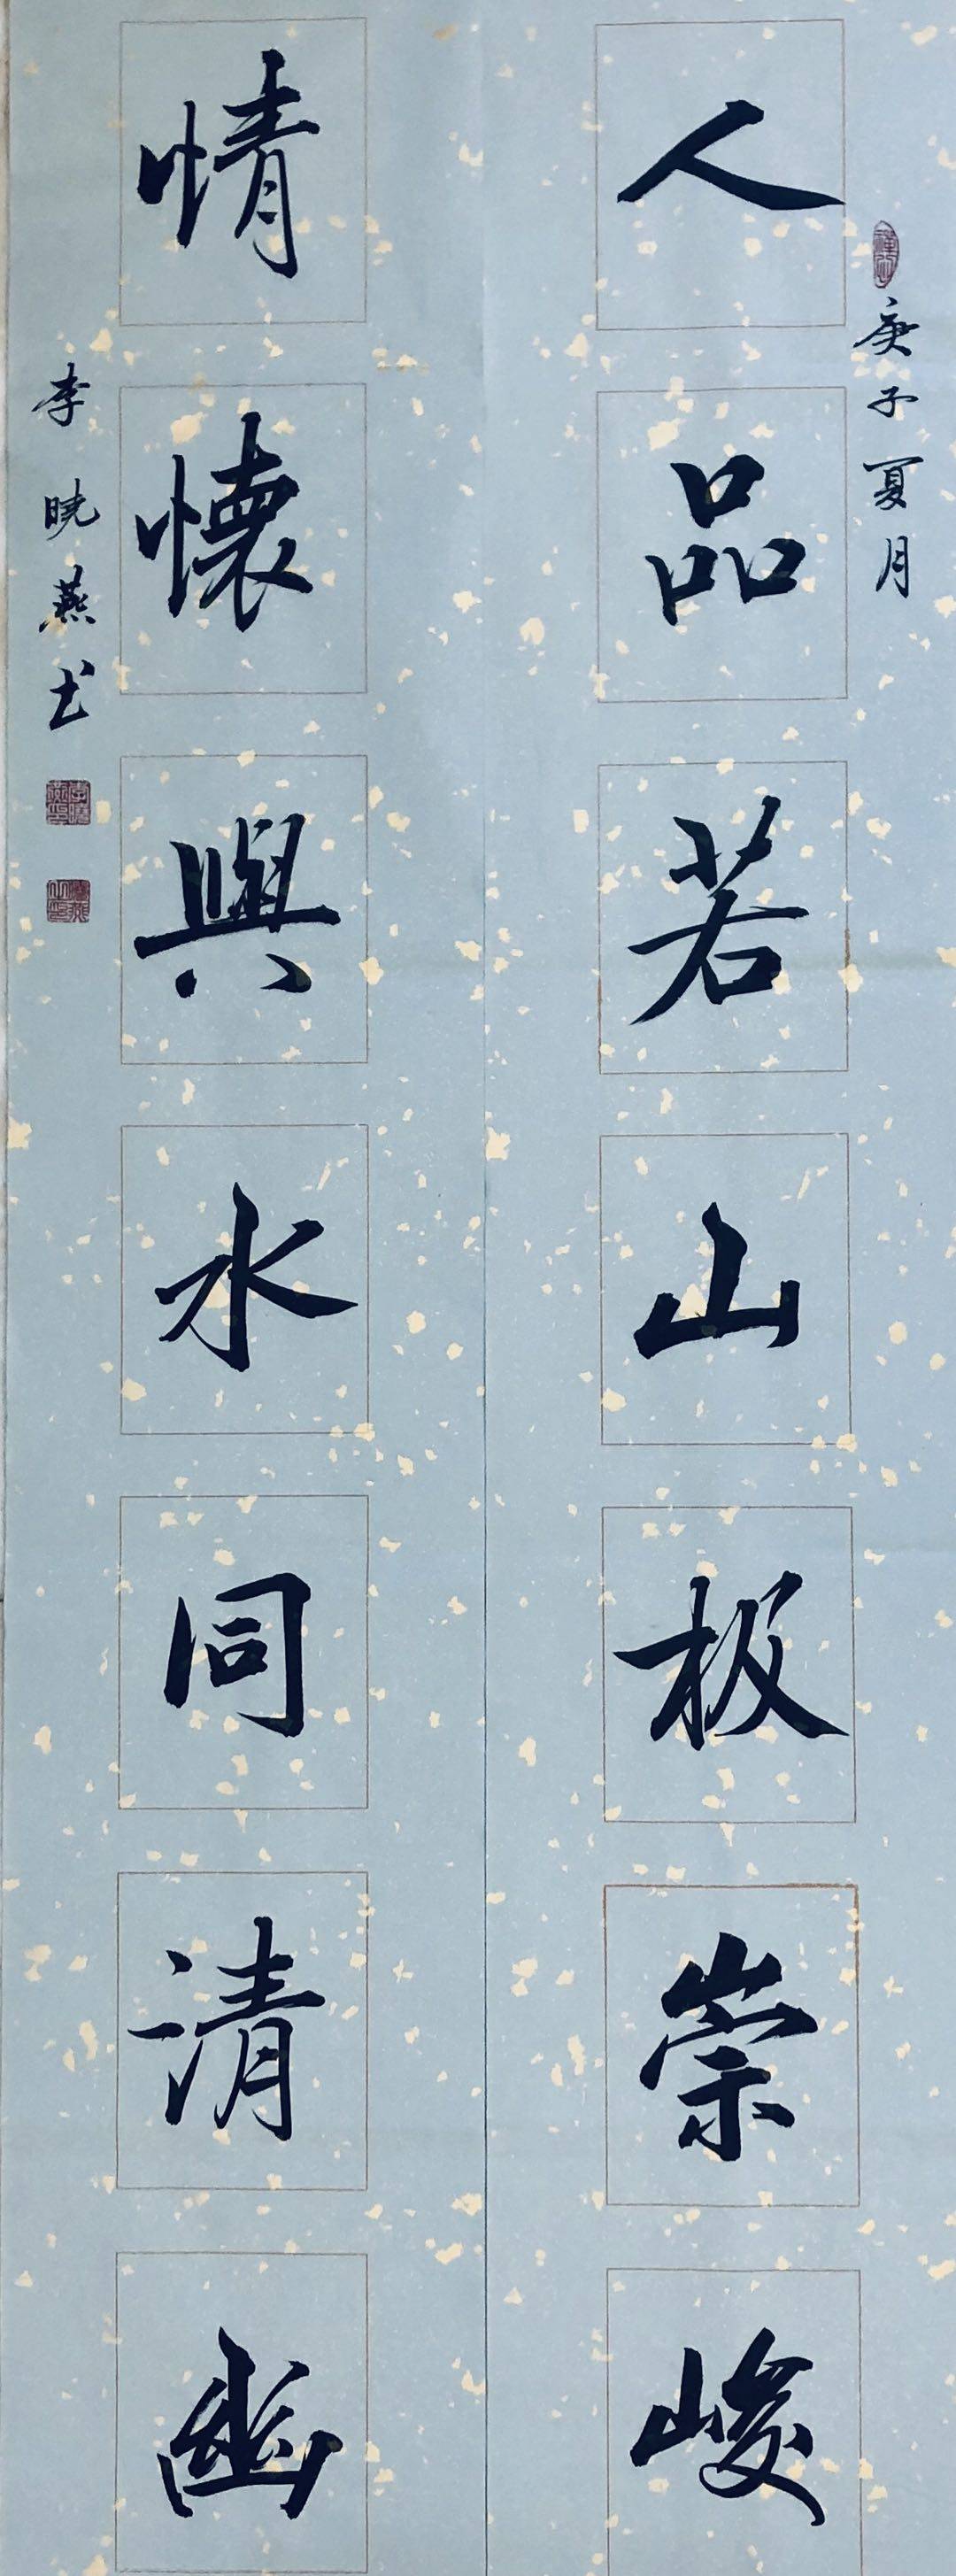 庚子夏月
人品若山极崇峻
情懷與水同清幽
李晓燕书